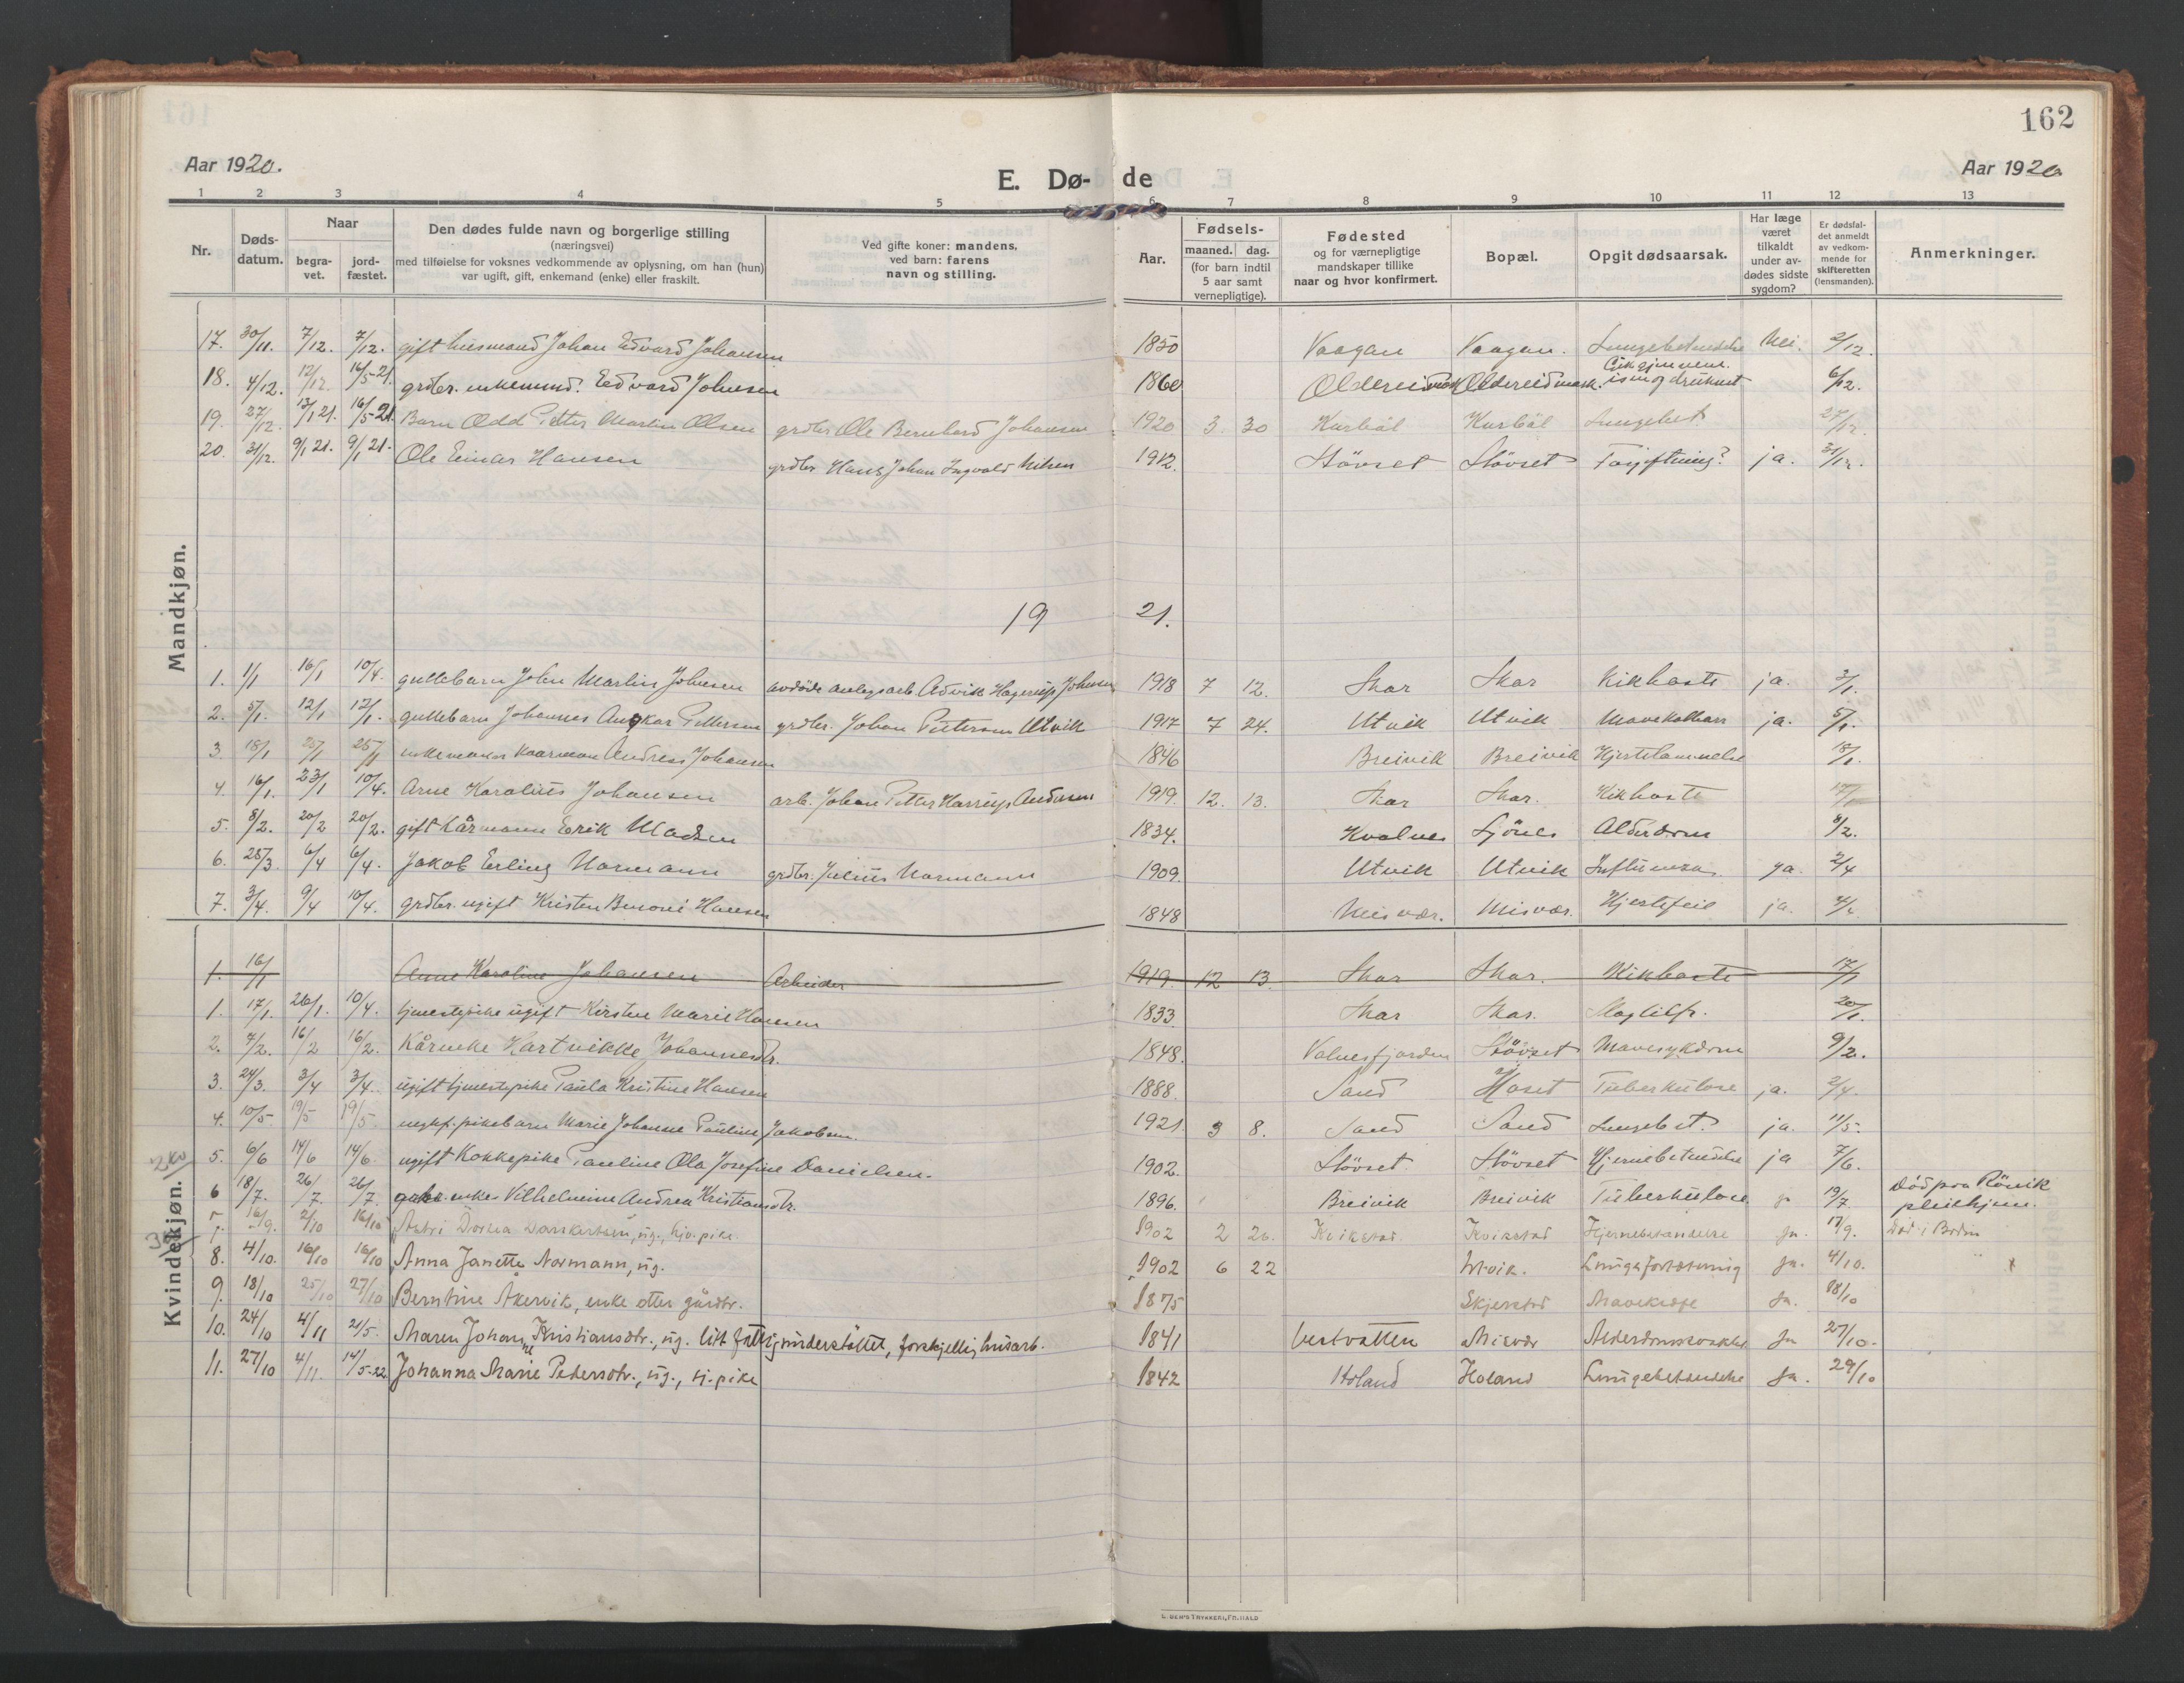 162
Aar 1920.
E. Dø- de
Aar 1920
1 2 3 4 5 6 7 8 9 10 11 12 13
Nr.
Døds-datum.
Naar
begra-vet.
jord-fæstet.
Den dødes fulde navn og borgerlige stilling
(næringsvei)
med tilføielse for voksnes vedkommende av oplysning, om han (hun)
var ugift, gift, enkemand (enke) eller fraskilt.
Ved gifte koner: mandens,
ved barn: farens
navn og stilling.
Aar.
Fødsels-
maaned. dag.
(for barn indtil
5 aar samt
vernepligtige).
Fødested
og for værnepligtige
mandskaper tillike
naar og hvor konfirmert.
Bopæl.
Opgit dødsaarsak.
Har læge
været
tilkaldt
under av-
dødes sidste
sygdom?
Er dødsfal-
det anmeldt
av vedkom-
mende for
skifteretten
(lensmanden).
Anmerkninger.
Mandkjøn.
17. 30/11. 7/12. 7/12. gift husmand Johan Edvard Johansen 1850 Vaagan Vaagan. Lungebetændelse Nei. 2/12.
18. 4/12. 12/12. 16/5-21. grdbr. enkemand. Edvard Johnsen 1860 Oldereid Oldereid Gik gjennem isen og druknet 6/12.
19. 27/12. 13/1 21. 16/5-21. Barn Odd Petter Martin Olsen grdbr Ole Bernhard Johansen 1920 3. 30 Kurbål Kurbål Lungebet. 27/12.
20. 31/12. 9/1 21. 9/1 21. Ole Einar Hansen grdbr Hans Johan Ingvald Nilsen 1912. Støvset Støvset Forgiftning? ja. 31/12.
19 21.
1. 1/1 16/1 10/4. guttebarn John Martin Johnsen avdøde anlegsarb. Advik Hagerup Johnsen 1918 7 12. Skar Skar Kikhoste ja. 3/1.
2. 5/1. 12/1 12/1. guttebarn Johannes Anskar Pettersen grdbr. Johan Pettersen Utvik 1917 7 24. Utvik Utvik Mavekathar ja. 5/1.
3 18/1 25/1 25/1 enkemand kaarmann Andreas Johansen 1846 Breivik Breivik Hjertelammelse 18/1.
4. 16/1. 23/1 10/4. Arne Karolius Johansen arb. Johan Petter Hartvig Andersen 1919. 12. 13. Skar Skar. Kikhoste 17/1
5. 8/2. 20/2 20/2. gift kårmann Erik Madsen 1834. Kvalnes Ljønes Alderdom 8/2.
6. 28/3 6/4 6/4. Jakob Erling Normann grdbr. Julius Normann 1909. Utvik Utvik Influensa ja. 2/4
7. 3/4. 9/4 10/4. grdbr. ugift Kristen Benoni Hansen 1848 Misvær. Misvær. Hjertefeil ja. 4/4
Kvindekjøn.
1. 16/1 Anne Karoline Johansen Arbeider 1919. 12 13 Skar Skar. Kikhoste 17/1
1. 17/1. 26/1. 10/4. tjenestepike ugift Kirsten Marie Hansen 1833. Skar Skar. Slagtilf. 20/1.
2. 7/2. 16/2 16/2. Kårenke Hartvikke Johannesdtr. 1848. Valnesfjorden Støvset Mavesykdom 9/2.
3. 24/3. 3/4 3/4. ugift tjenestepike Paula Kristine Hansen 1888. Sand Hoset Tuberkulose ja. 2/4.
4. 10/5 19/5 19/5. pikebarn Marie Johanne Pauline Jakobsen. 1921 3 8. Sand Sand Lungebet. ja. 11/5.
5. 6/6 14/6 14/6. ugift Kokkepike Pauline Ola Josefine Danielsen. 1902. Støvset. Støvset Hjernebetændelse ja 7/6.
6 18/7. 26/7. 26/7 enke Vilhelmine Andrea Kristiansdtr. 1896. Breivik Breivik Tuberkulose. ja 19/7. Död paa Rönvik pleiehjem.
7. 16/9. 2/10 16/10 Astri Dorthea Danskertsen, ug., hj. pike 1902 2 20. Kvikstad. Kvikstad Hjernebetændelse Ja. 17/9. Död i Bodin
8. 4/10. 16/10 16/10 Anna Janette Normann, ug. 1902 6 22 Utvik. Lungefortetning Ja. 4/10.
9. 18/10 25/10 27/10 Berntine Åkervik, enke etter gårdbr. 1875 Skjerstad Mavekreft Ja. 18/10
10. 24/10 4/11 21/5. Maren Johanne Kristiansdtr., ug. litt fattigunderstöttet, forskjellig husarb. 1841 Vestvatten Misvær Alderdomssvakhet Ja 27/10.
11. 27/10 4/11. 14/5-22 Johanna Marie Pedersdtr., ug., tj. pike 1842 Holand Holand Lungebetendelse Ja. 29/10